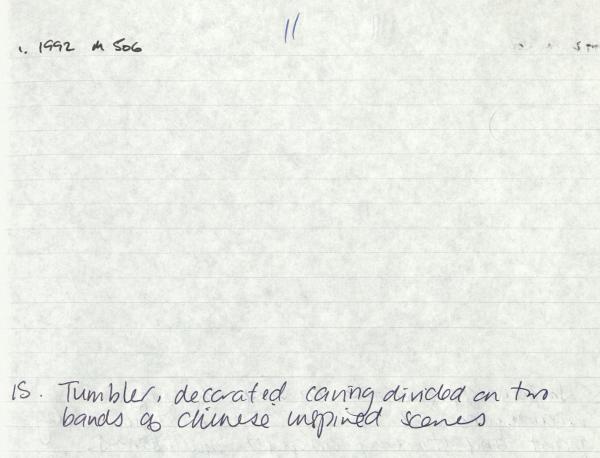 11
1. 1992 M 506
15. Tumbler, decorated carving divided on two
bands of chinese inspired scenes